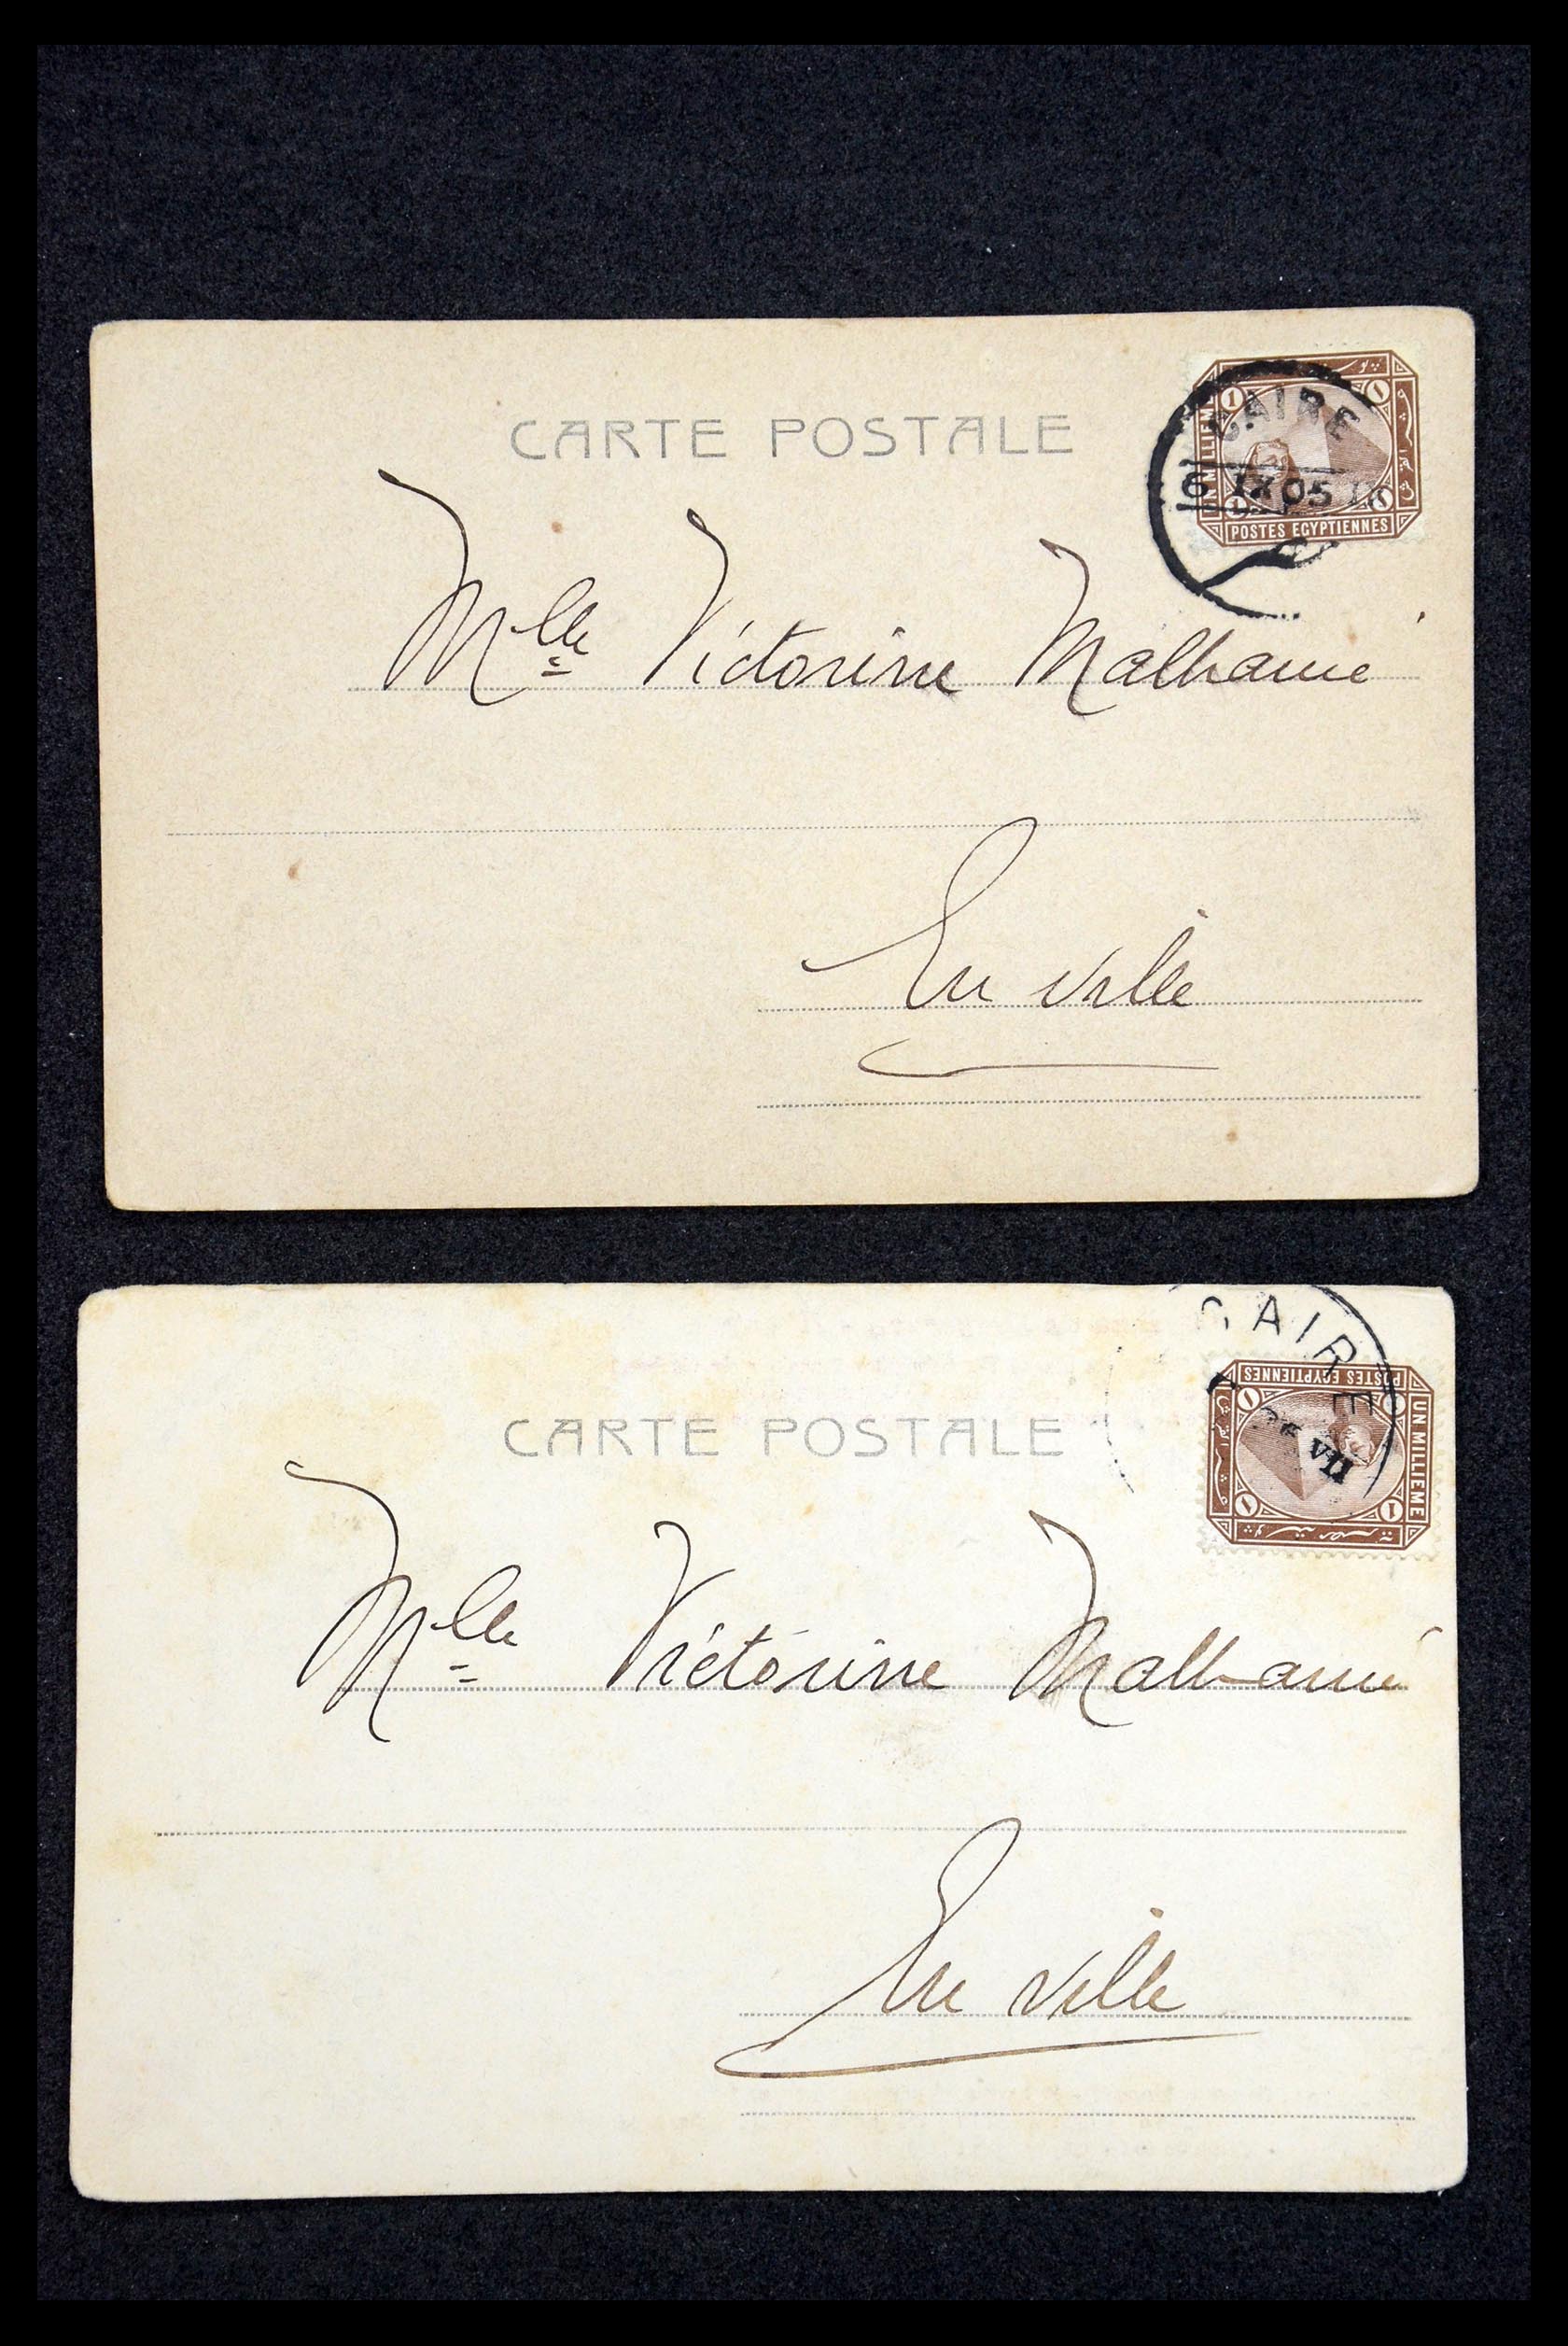 CARTE POSTALE
CAIRE
6 IX 05
UN MILLIEME
POSTES EGYPTIENNES
Mlle Victorine Malhamé
En ville
CAIRE
VII
POSTES EGYPTIENNES
UN MILLIEME
CARTE POSTALE
Mlle Victorine Malhamé
En ville